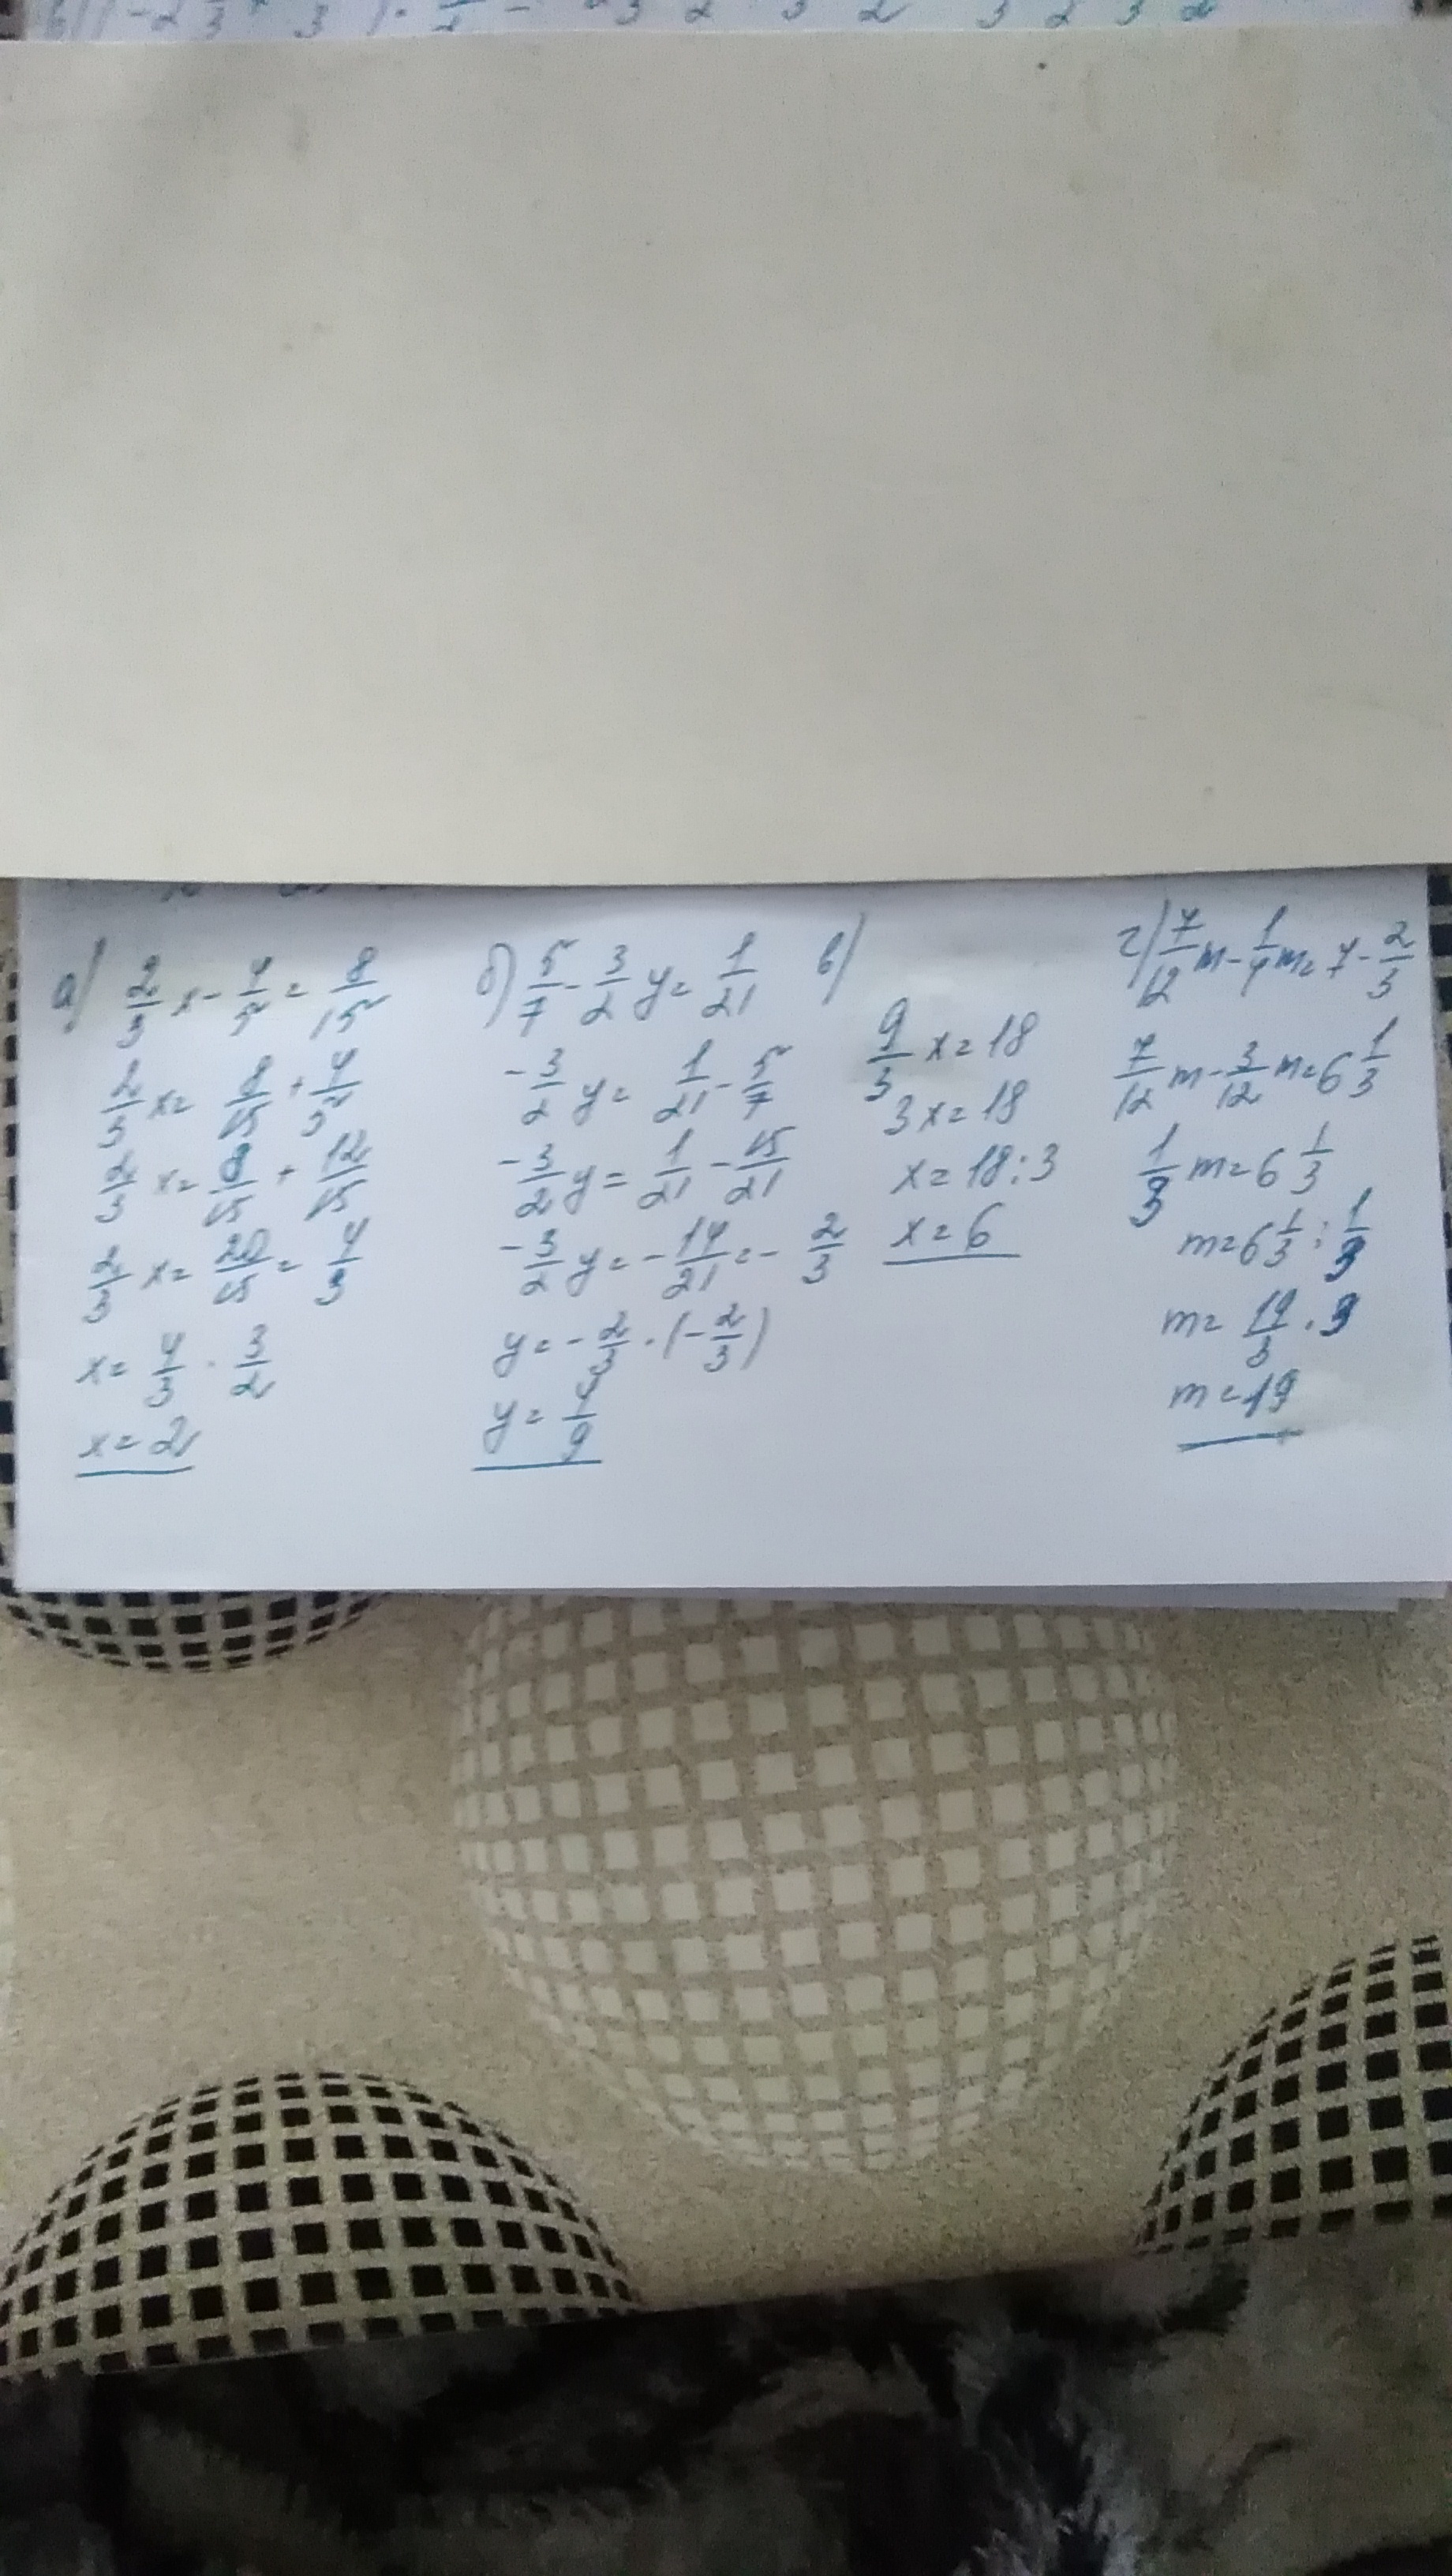 а) 2/3 x - 4/5 = 8/15
2/3 x = 8/15 + 4/5
2/3 x = 8/15 + 12/15
2/3 x = 20/15 = 4/3
x = 4/3 · 3/2
x = 2
б) 5/7 - 3/2 y = 1/21
-3/2 y = 1/21 - 5/7
-3/2 y = 1/21 - 15/21
-3/2 y = -14/21 = - 2/3
y = - 2/3 · (- 2/3)
y = 4/9
в)
9/3 x = 18
3x = 18
x = 18 : 3
x = 6
г) 7/12 m - 1/4 m = 7 - 2/3
7/12 m - 3/12 m = 6 1/3
1/3 m = 6 1/3
m = 6 1/3 : 1/3
m = 19/3 · 3
m = 19